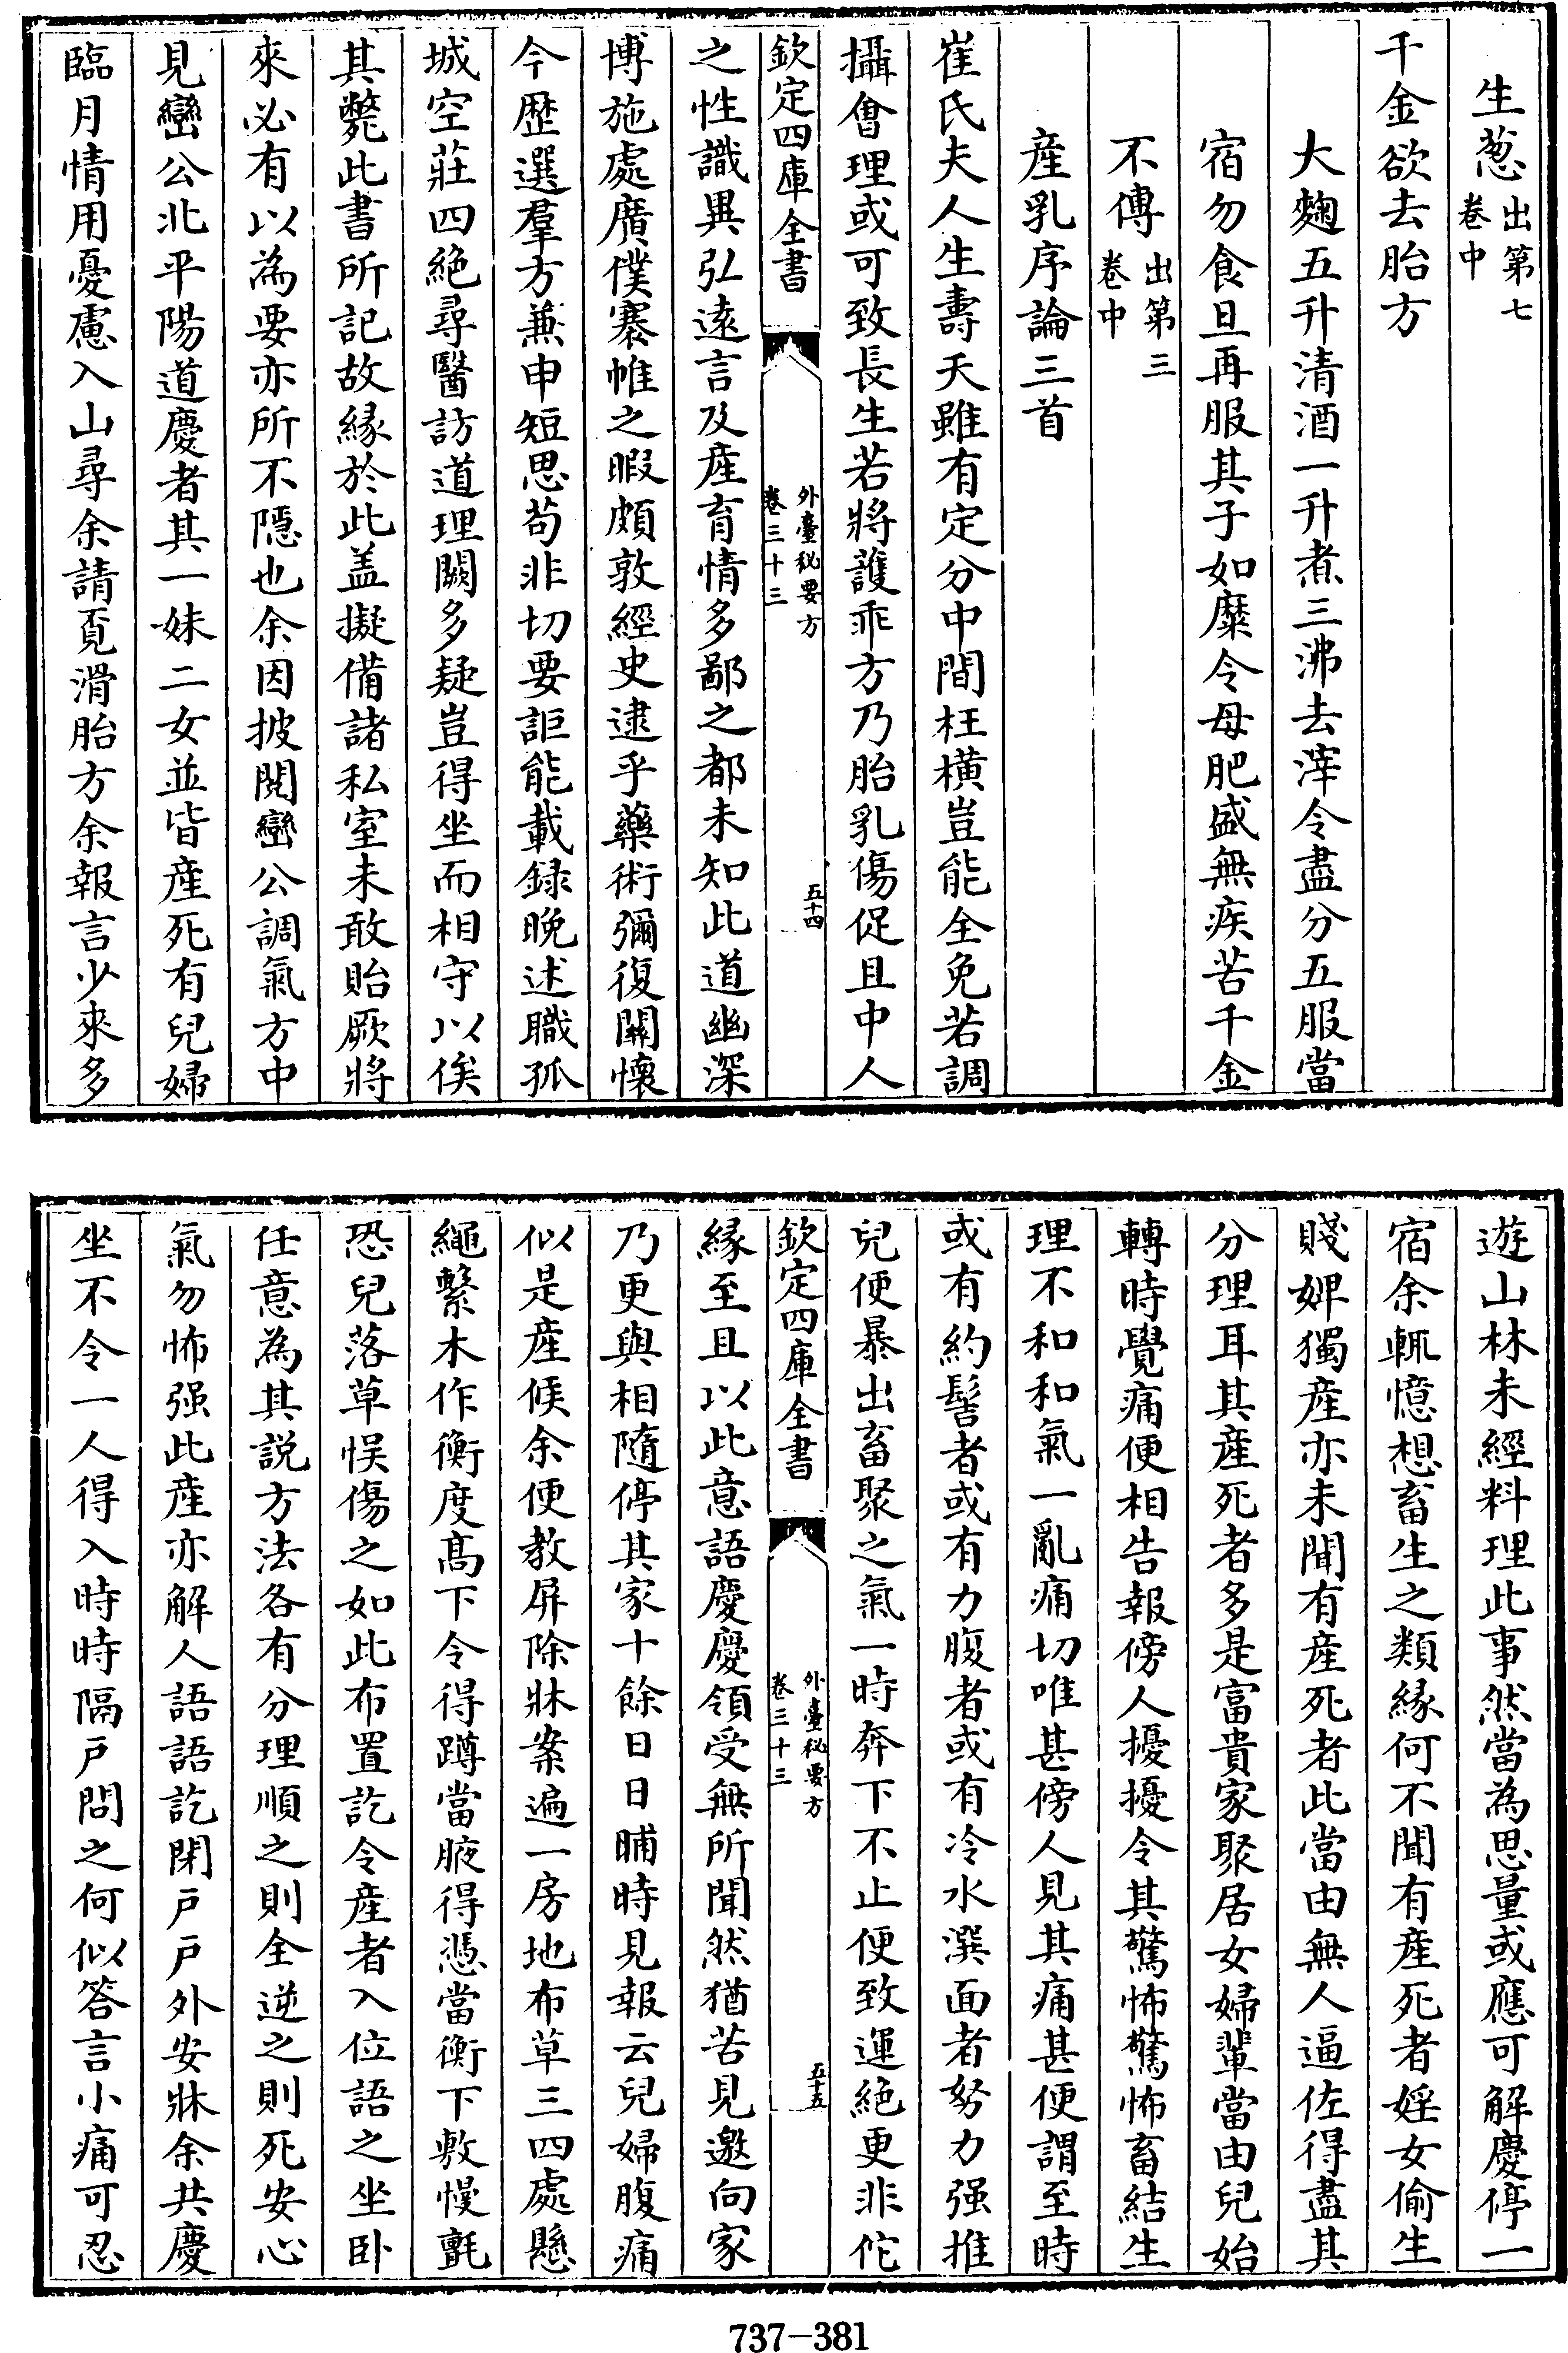 生葱出第七卷中
千金欲去胎方
大麴五升清酒一升煮三沸去滓令盡分五服當
宿勿食旦再服其子如糜令母肥盛無疾苦千金
不傳出第三卷中
産乳序論三首
崔氏夫人生壽夭雖有定分中間枉橫豈能全免若調
攝㑹理或可致長生若將護乖方乃胎乳傷促且中人
欽定四庫全書
外臺秘要方
卷三十三
五十四
之性識異弘遠言及産育情多鄙之都未知此道幽深
博施處廣僕褰帷之暇頗敦經史逮乎藥術彌復關懷
今歴選羣方兼申短思苟非切要詎能載録晚述職孤
城空莊四絶尋醫訪道理闕多疑豈得坐而相守以俟
其斃此書所記故縁於此盖擬備諸私室未敢貽厥將
來必有以為要亦所不隱也余因披閲巒公調氣方中
見巒公北平陽道慶者其一妹二女並皆産死有兒婦
臨月情用憂慮入山尋余請覔滑胎方余報言少來多
遊山林未經料理此事然當為思量或應可解慶停一
宿余輒憶想畜生之類縁何不聞有産死者婬女偷生
賤婢獨産亦未聞有産死者此當由無人逼佐得盡其
分理耳其産死者多是富貴家聚居女婦輩當由兒始
轉時覺痛便相告報傍人擾擾令其驚怖驚怖畜結生
理不和和氣一亂痛切唯甚傍人見其痛甚便謂至時
或有約髻者或有力腹者或有冷水潠面者努力强推
兒便暴出畜聚之氣一時奔下不止便致運絶更非佗
欽定四庫全書
外臺秘要方
卷三十三
五十五
縁至且以此意語慶慶領受無所聞然猶苦見邀向家
乃更與相隨停其家十餘日日晡時見報云兒婦腹痛
似是産候余便教屏除牀案遍一房地布草三四處懸
繩繫木作衡度髙下令得蹲當腋得憑當衡下敷慢氈
恐兒落草悮傷之如此布置訖令産者入位語之坐卧
任意為其説方法各有分理順之則全逆之則死安心
氣勿怖强此産亦解人語語訖閉戸戸外安牀余共慶
坐不令一人得入時時隔戸問之何似答言小痛可忍
737-381